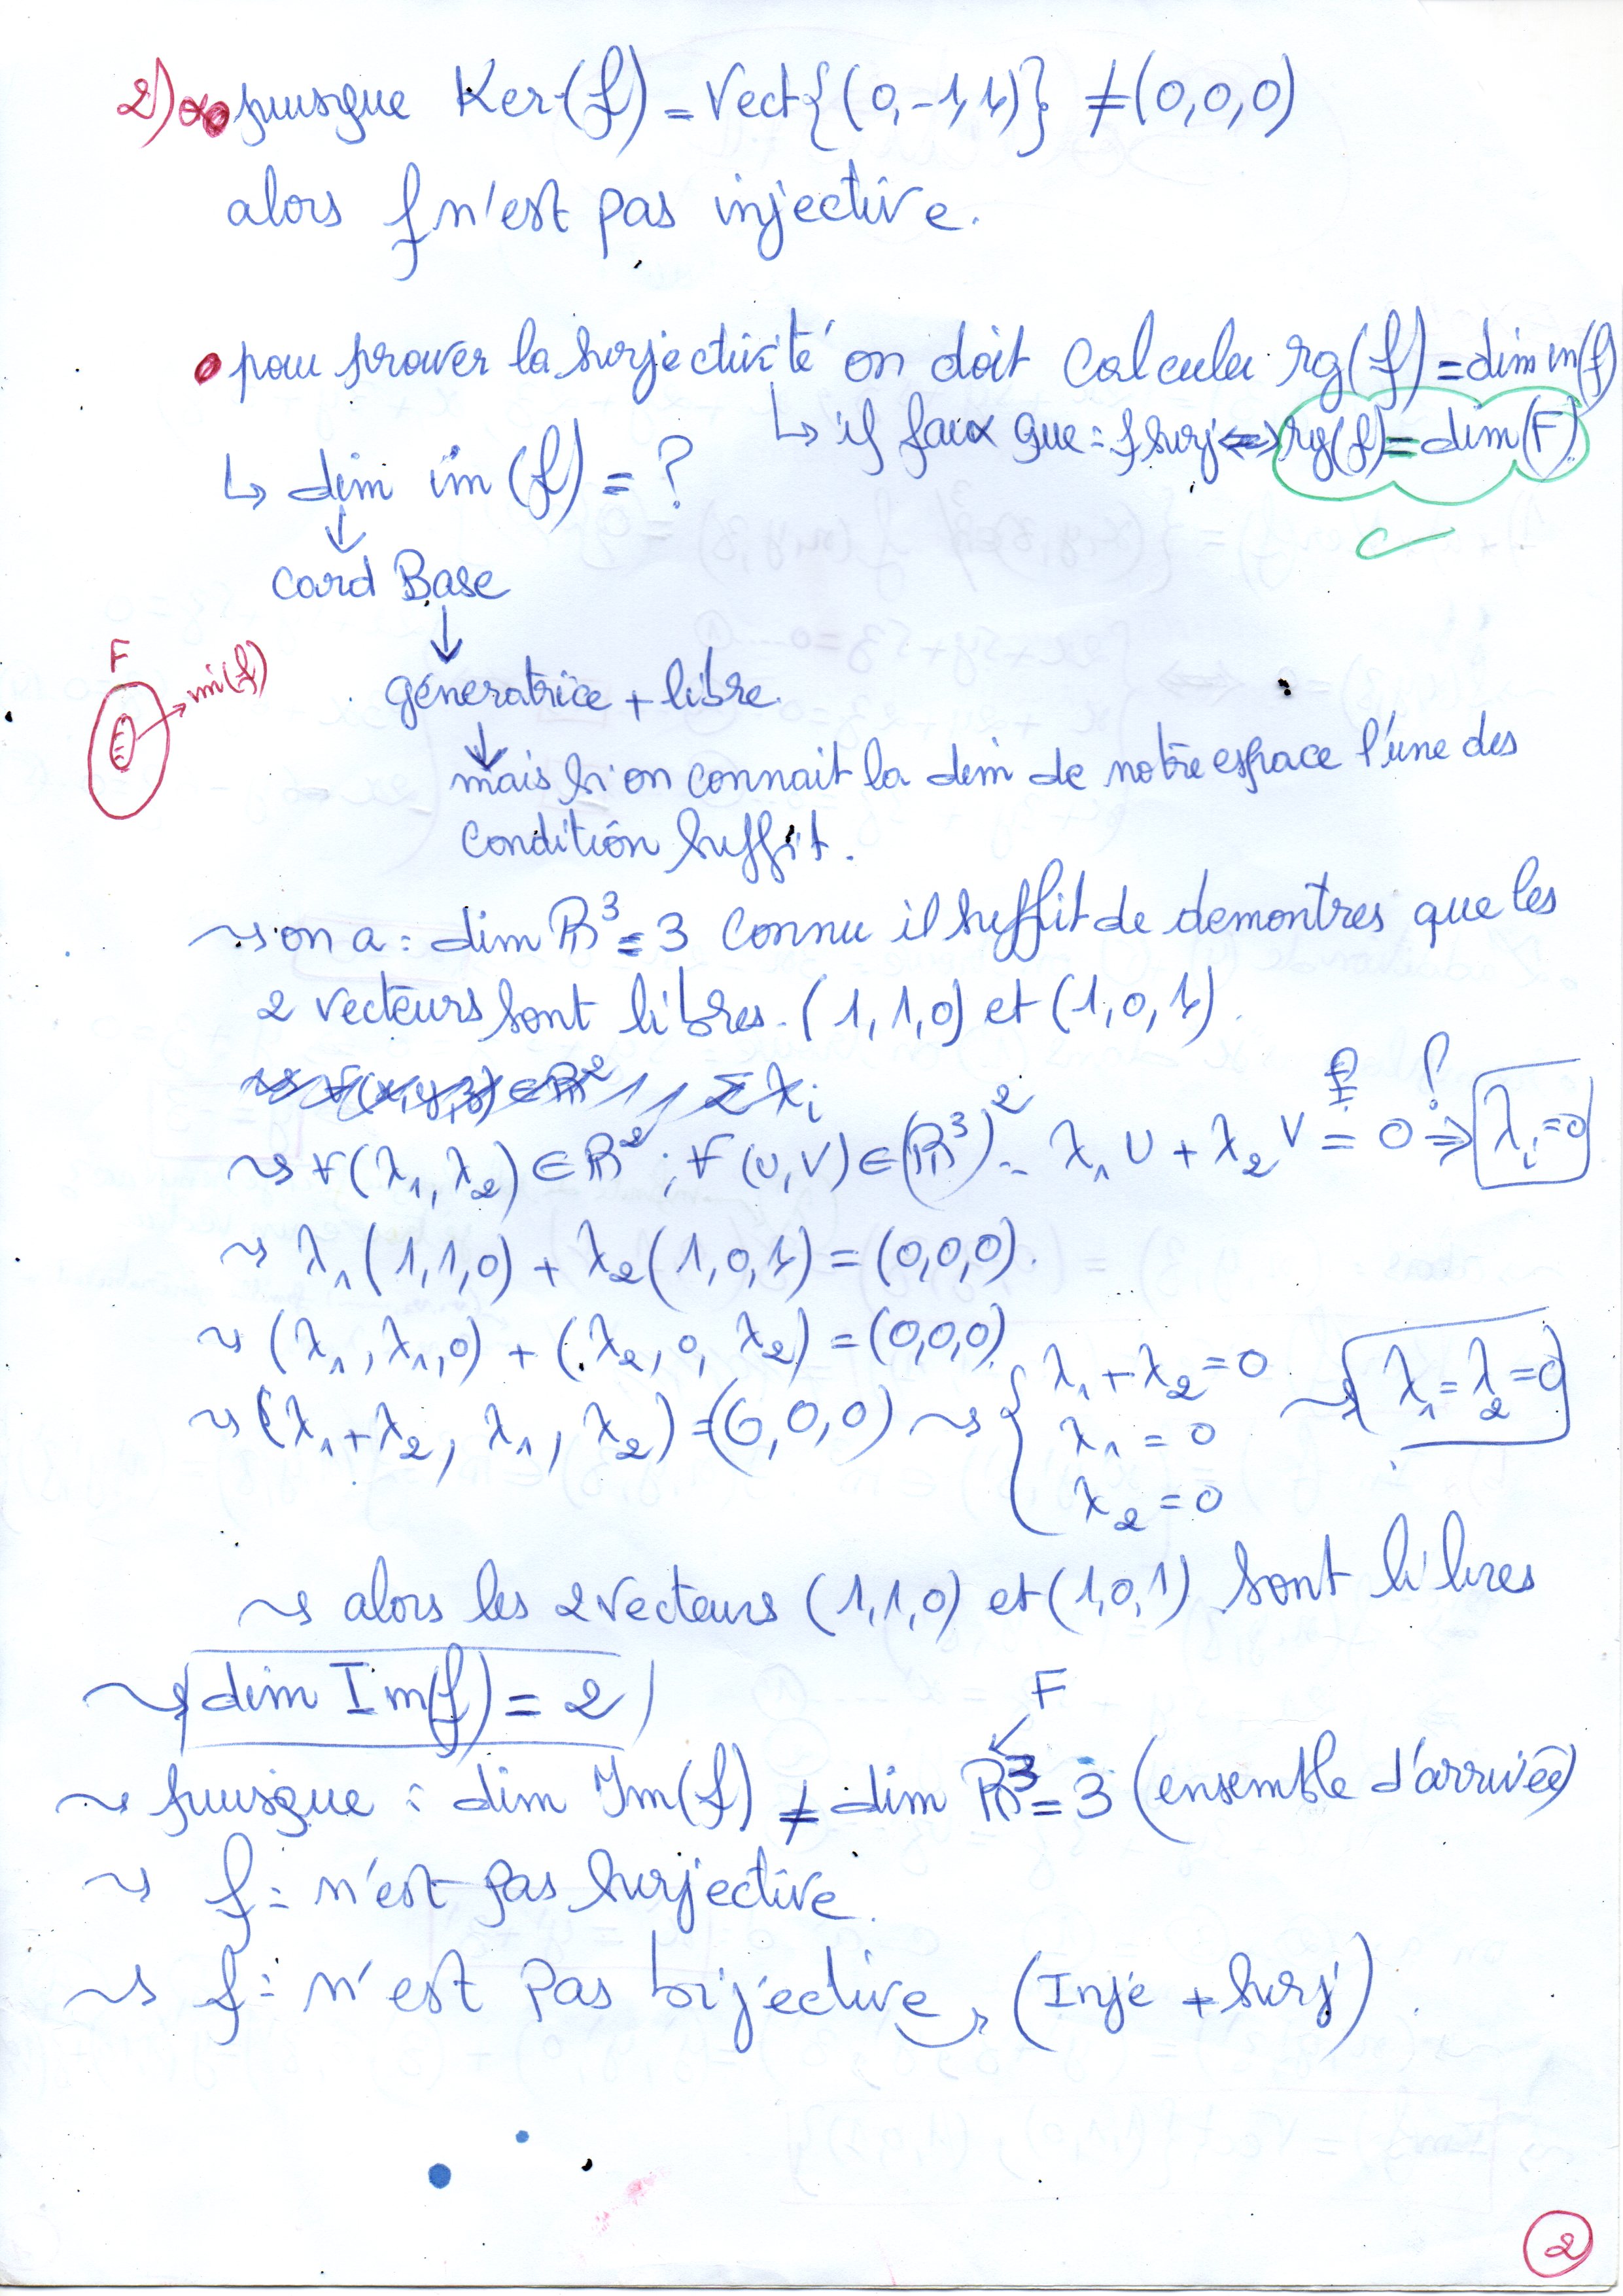 2) puisque Ker(f) = Vect{(0,-1,1)} ≠ (0,0,0)
alors f n'est pas injective.
• pour prouver la surjectivité on doit calculer rg(f) = dim im(f)
↳ il faux que : f surj ⟺ rg(f) = dim(F)
↳ dim im (f) = ?
↓
card Base
↓
géneratrice + libre.
F
im(f)
↓
mais si on connait la dim de notre espace l'une des
condition suffit.
⇝ on a : dim ℝ³ = 3 connu il suffit de demontres que les
2 vecteurs sont libres. (1,1,0) et (1,0,1).
⇝ ∀(λ₁, λ₂) ∈ ℝ² ; ∀ (U,V) ∈ (ℝ³)² - λ₁ U + λ₂ V = 0 ⇒ λᵢ=0
?
⇝ λ₁(1,1,0) + λ₂(1,0,1) = (0,0,0).
⇝ (λ₁, λ₁, 0) + (λ₂, 0, λ₂) = (0,0,0)
⇝ (λ₁+λ₂, λ₁, λ₂) = (0,0,0) ⇝ { λ₁+λ₂ = 0 ⇝ λ₁ = λ₂ = 0
λ₁ = 0
λ₂ = 0
⇝ alors les 2 vecteurs (1,1,0) et (1,0,1) sont libres
⇝ dim Im(f) = 2
F
⇝ puisque : dim Im(f) ≠ dim ℝ³ = 3 (ensemble d'arrivée)
⇝ f : n'est pas surjective.
⇝ f : n'est pas bijective, (Inje + surj).
2